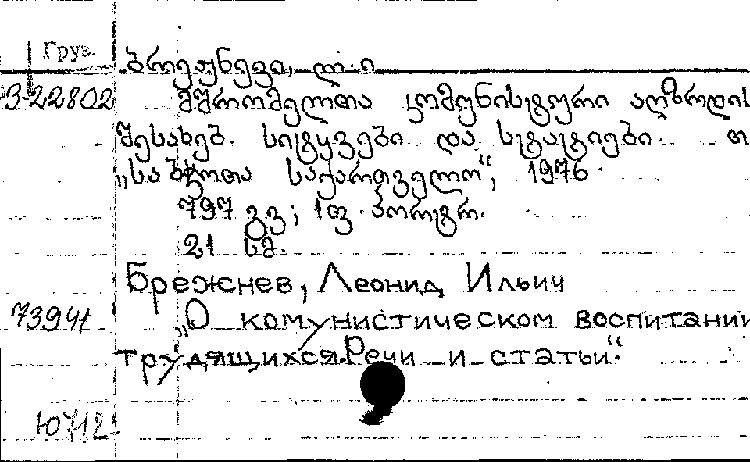 Груз.
ბრეჟნევი, ლ. ი
3-22802 მშრომელთა კომუნისტური აღზრდის
შესახებ. სიტყვები და სტატიები. თ
„საბჭოთა საქართველო“, 1976
797 გვ; 1ფ. პორტრ.
21 სმ.
Брежнев, Леонид Ильич
7394/ „О комунистическом воспитании
трудящихся. Речи и статьи“.